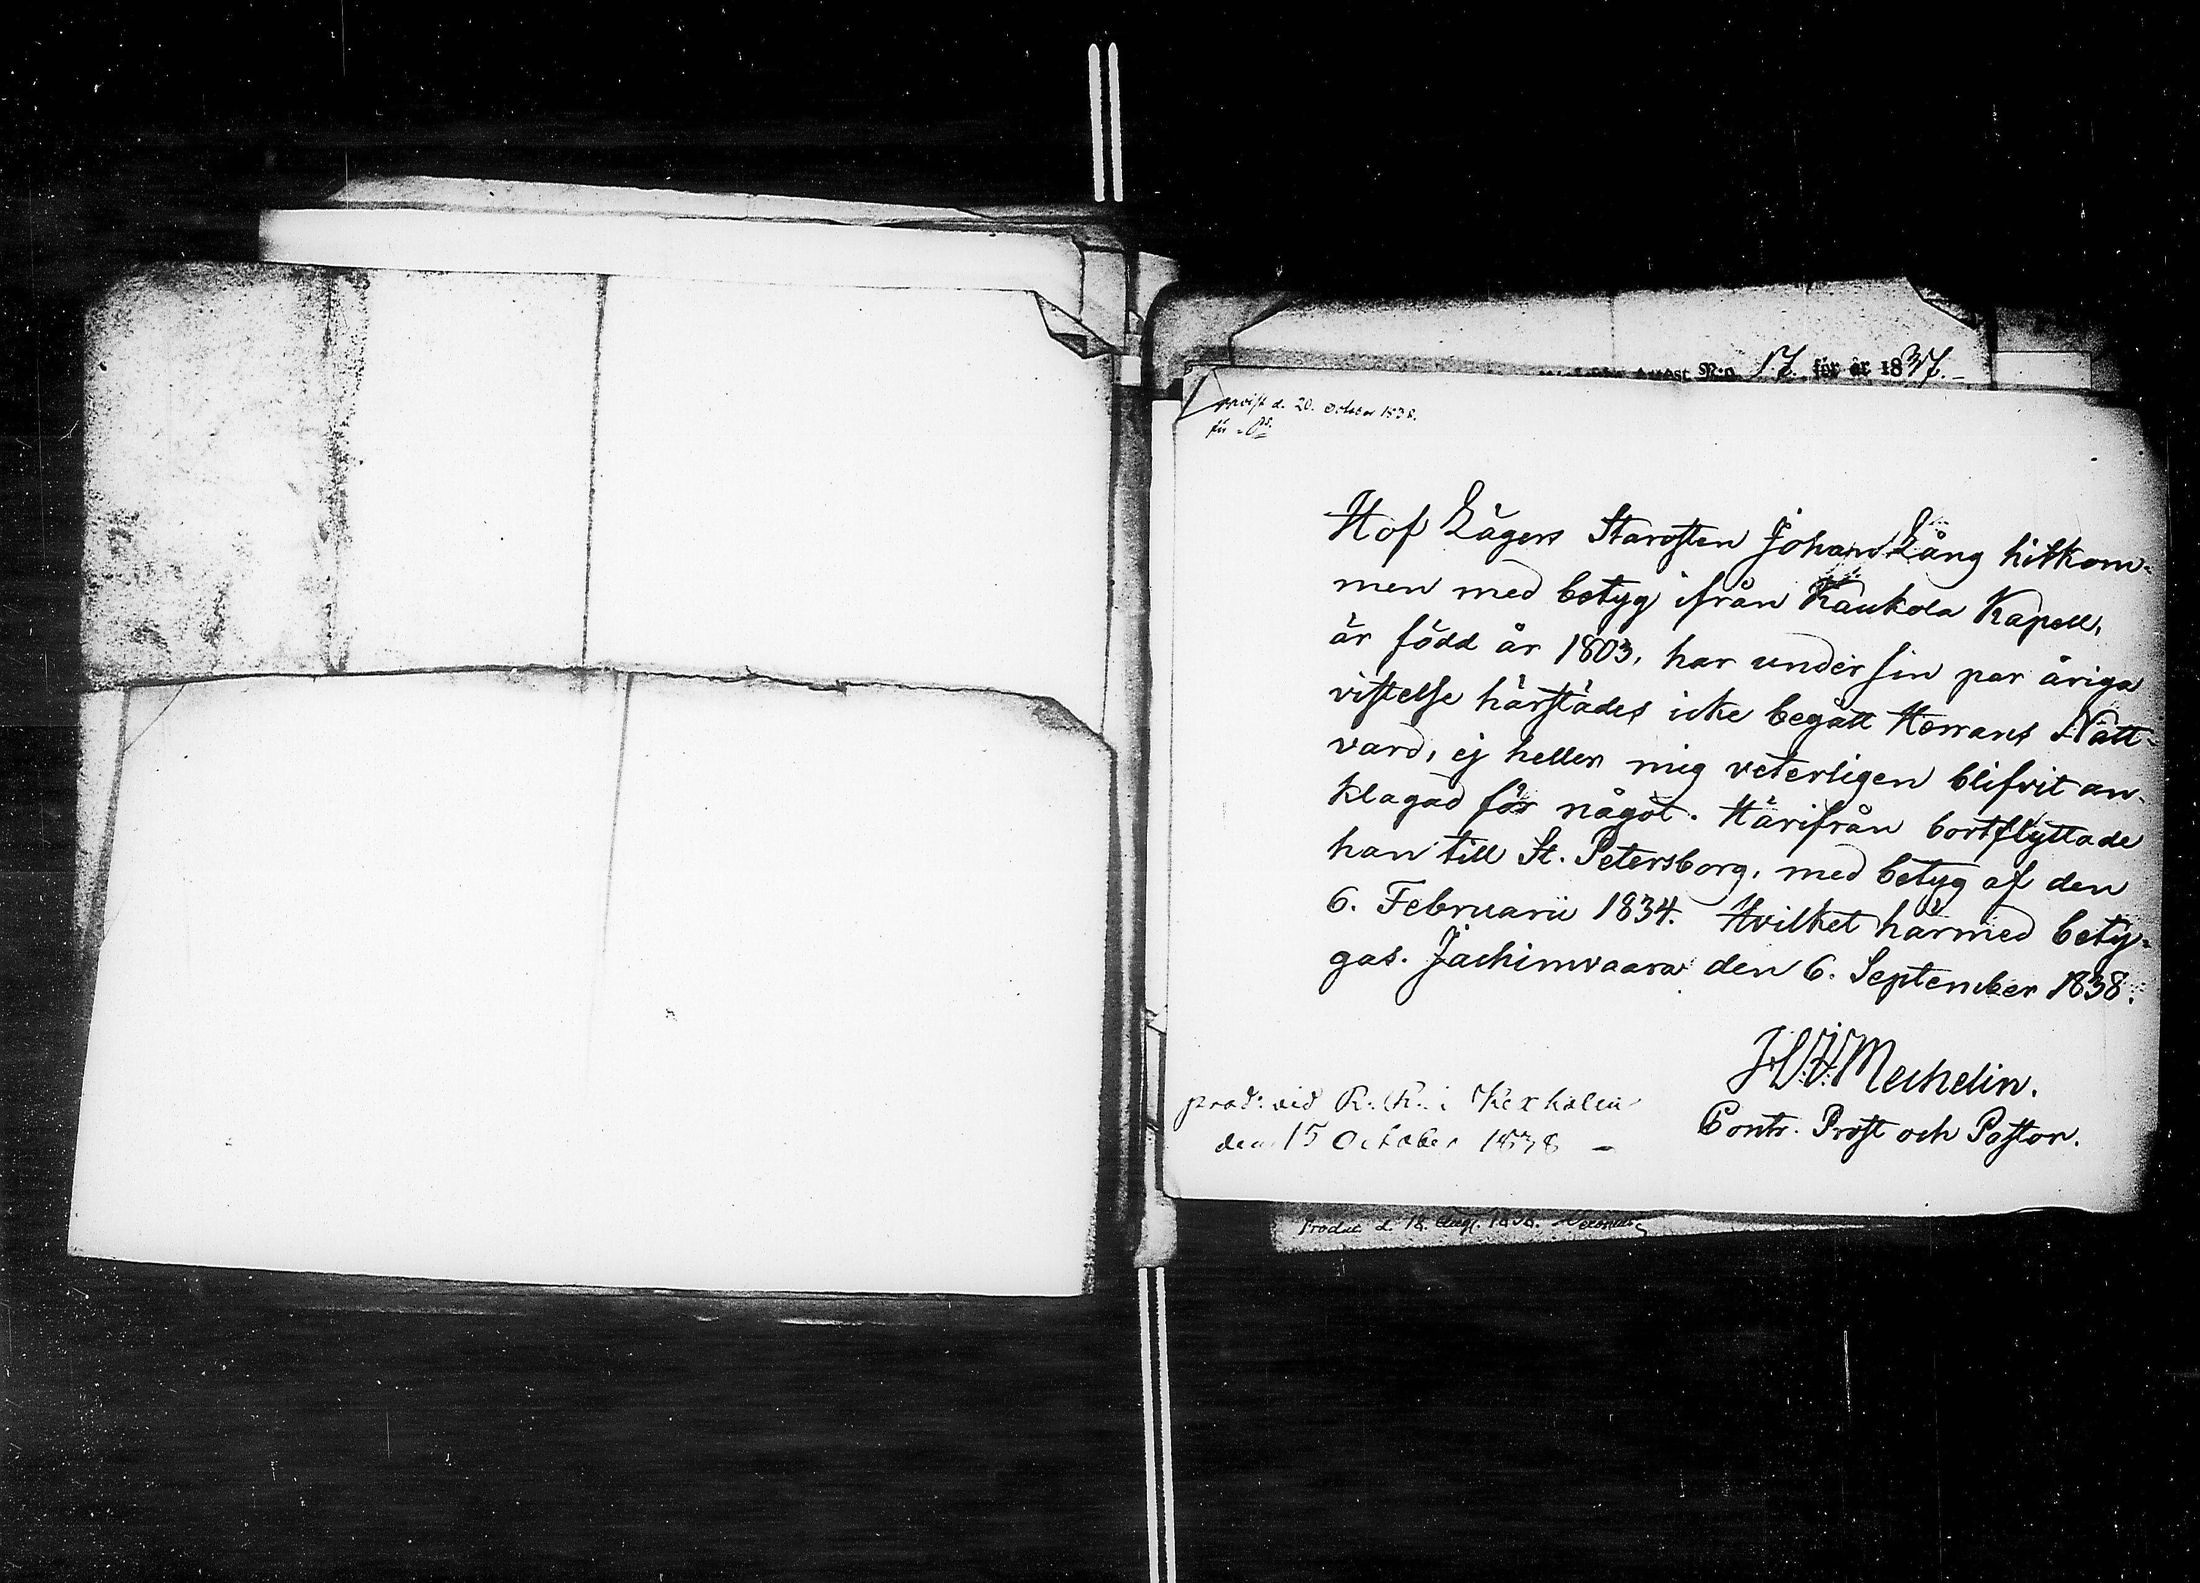 Attest N:o 57. för år 1837.
d. 20. October 1838.
Hof Lägers Starosten Johan Lång hitkom-
men med betyg ifrån Kaukola Kapell,
är född år 1803, har under sin par åriga
vistelse härstädes icke begått Herrans Natt-
vard, ej heller mig veterligen blifvit an-
klagad för något. Härifrån bortflyttade
han till St. Petersborg, med betyg af den
6. Februarii 1834. Hvilket härmed bety-
gas. Jachimvaara den 6. September 1838.
Mechelin.
Contr. Prost och Pastor.
prod: vid R. R. i Kexholm
den 15 October 1838 —
Prodc d. 18. Aug. 1838.